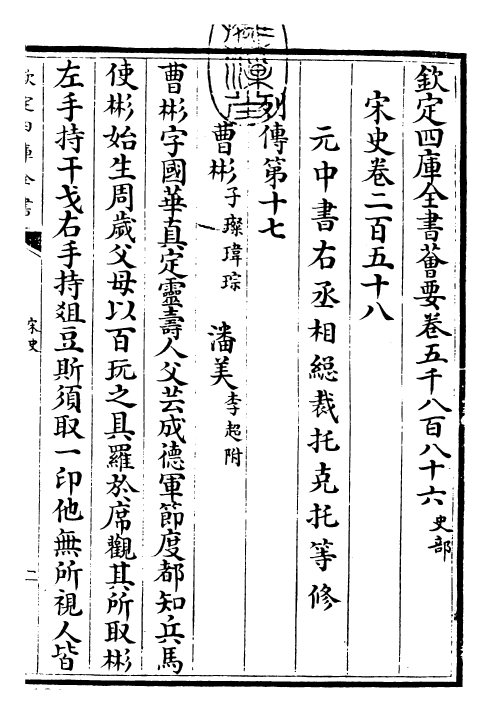 欽定四庫全書薈要卷五千八百八十六史部
宋史卷二百五十八
元中書右丞相總裁托克托等修
列傳第十七
曹彬子璨瑋琮 潘美李超附
曹彬字國華真定靈壽人父芸成德軍節度都知兵馬
使彬始生周歲父母以百玩之具羅於席觀其所取彬
左手持干戈右手持俎豆斯須取一印他無所視人皆
欽定四庫全書
宋史
二